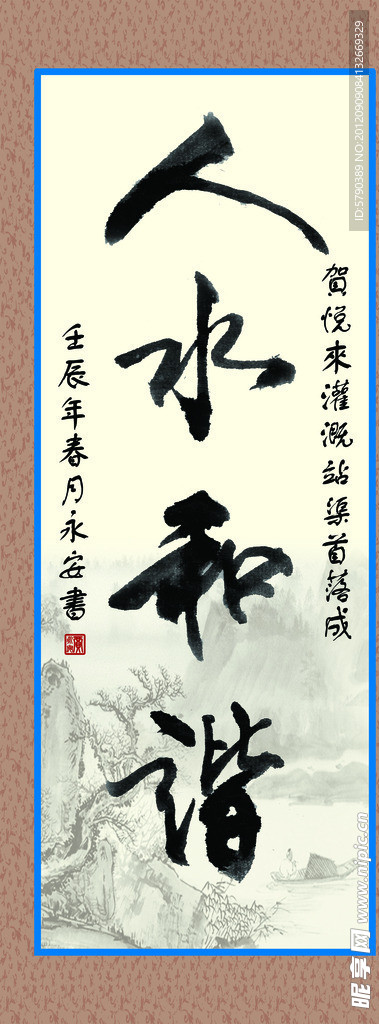 賀悅來灌溉站渠首落成
人水和諧
壬辰年春月永安書
ID:5790389 NO:20120909084132669329
昵享网 www.nipic.cn